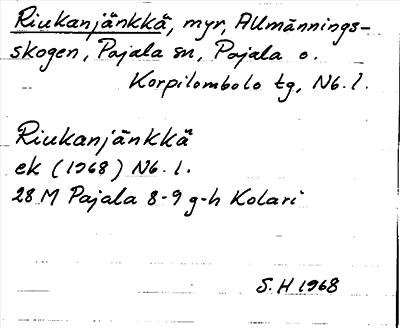 Riukanjänkkä, myr, Allmännings-
skogen, Pajala sn, Pajala o.
Korpilombolo tg, Nb. l.
Riukanjänkkä
ek (1968) Nb. l.
28 M Pajala 8-9 g-h Kolari
S. H 1968